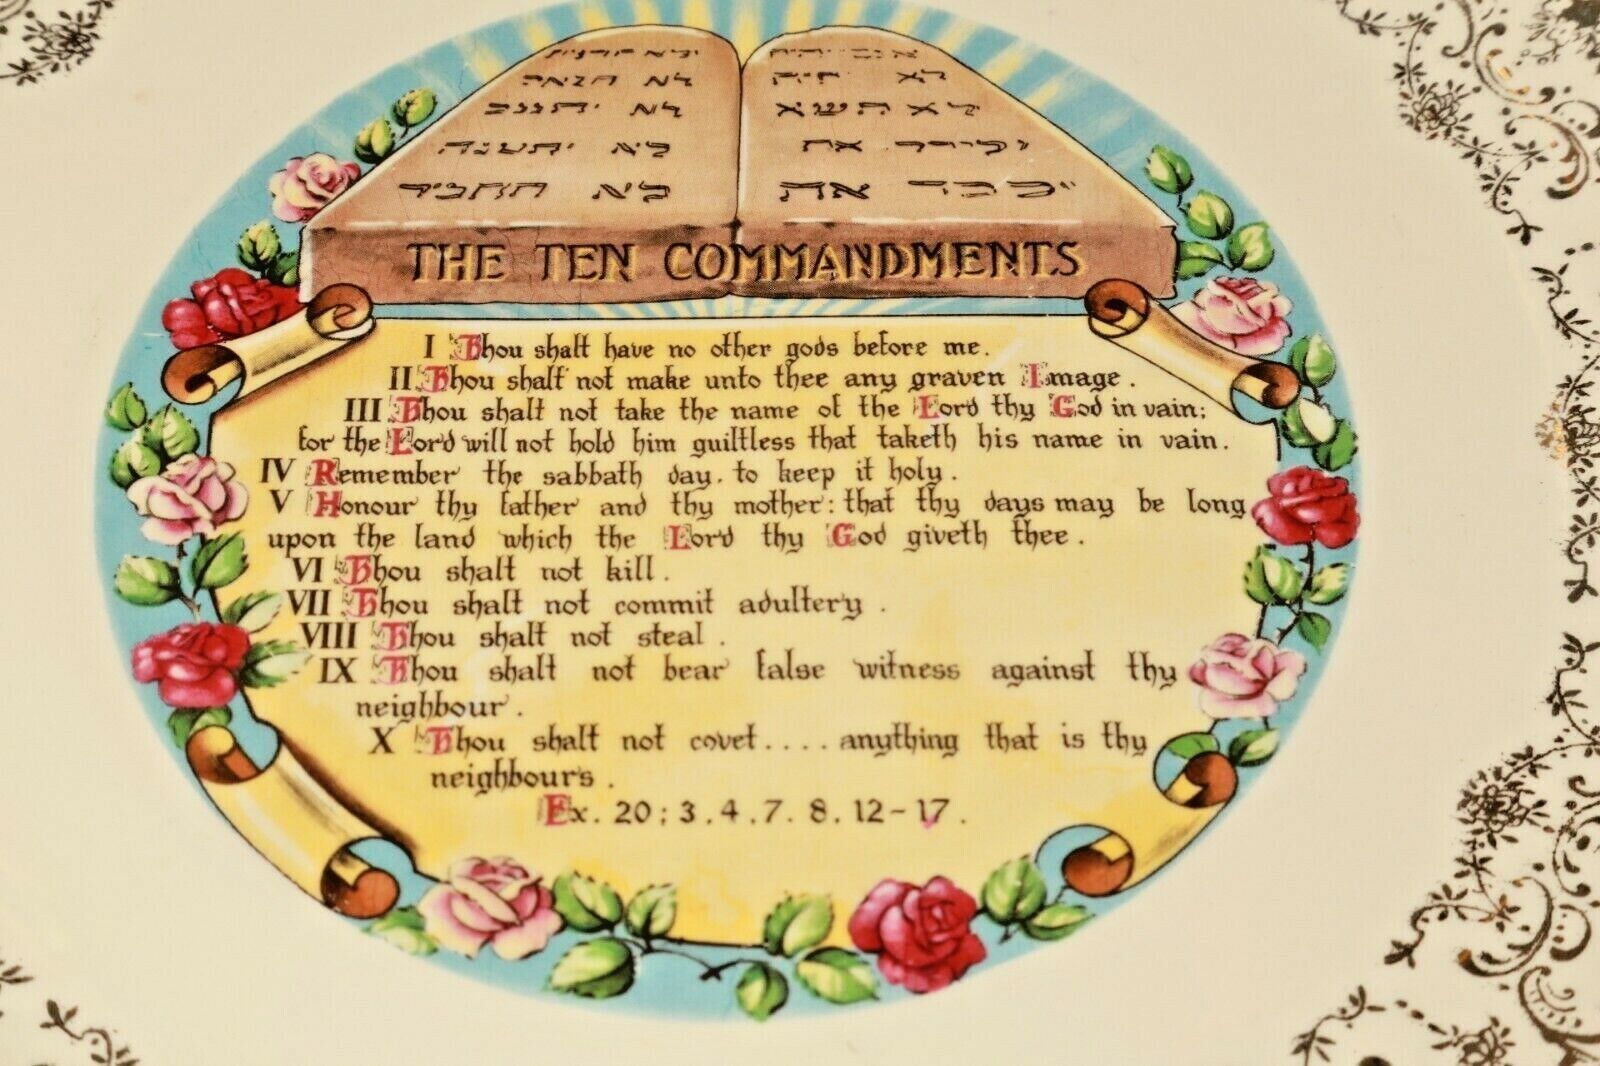 לא
לא
לא
לא
לא תשא
לא
את
את
THE TEN COMMANDMENTS
I Thou shalt have no other gods before me.
II Thou shalt not make unto thee any graven Image.
III Thou shalt not take the name of the Lord thy God in vain:
for the Lord will not hold him guiltless that taketh his name in vain.
IV Remember the sabbath day. to keep it holy.
V Honour thy father and thy mother: that thy days may be long
upon the land which the Lord thy God giveth thee.
VI Thou shalt not kill.
VII Thou shalt not commit adultery.
VIII Thou shalt not steal.
IX Thou shalt not bear false witness against thy
neighbour.
X Thou shalt not covet.... anything that is thy
neighbours.
Ex. 20:3.4.7.8.12-17.